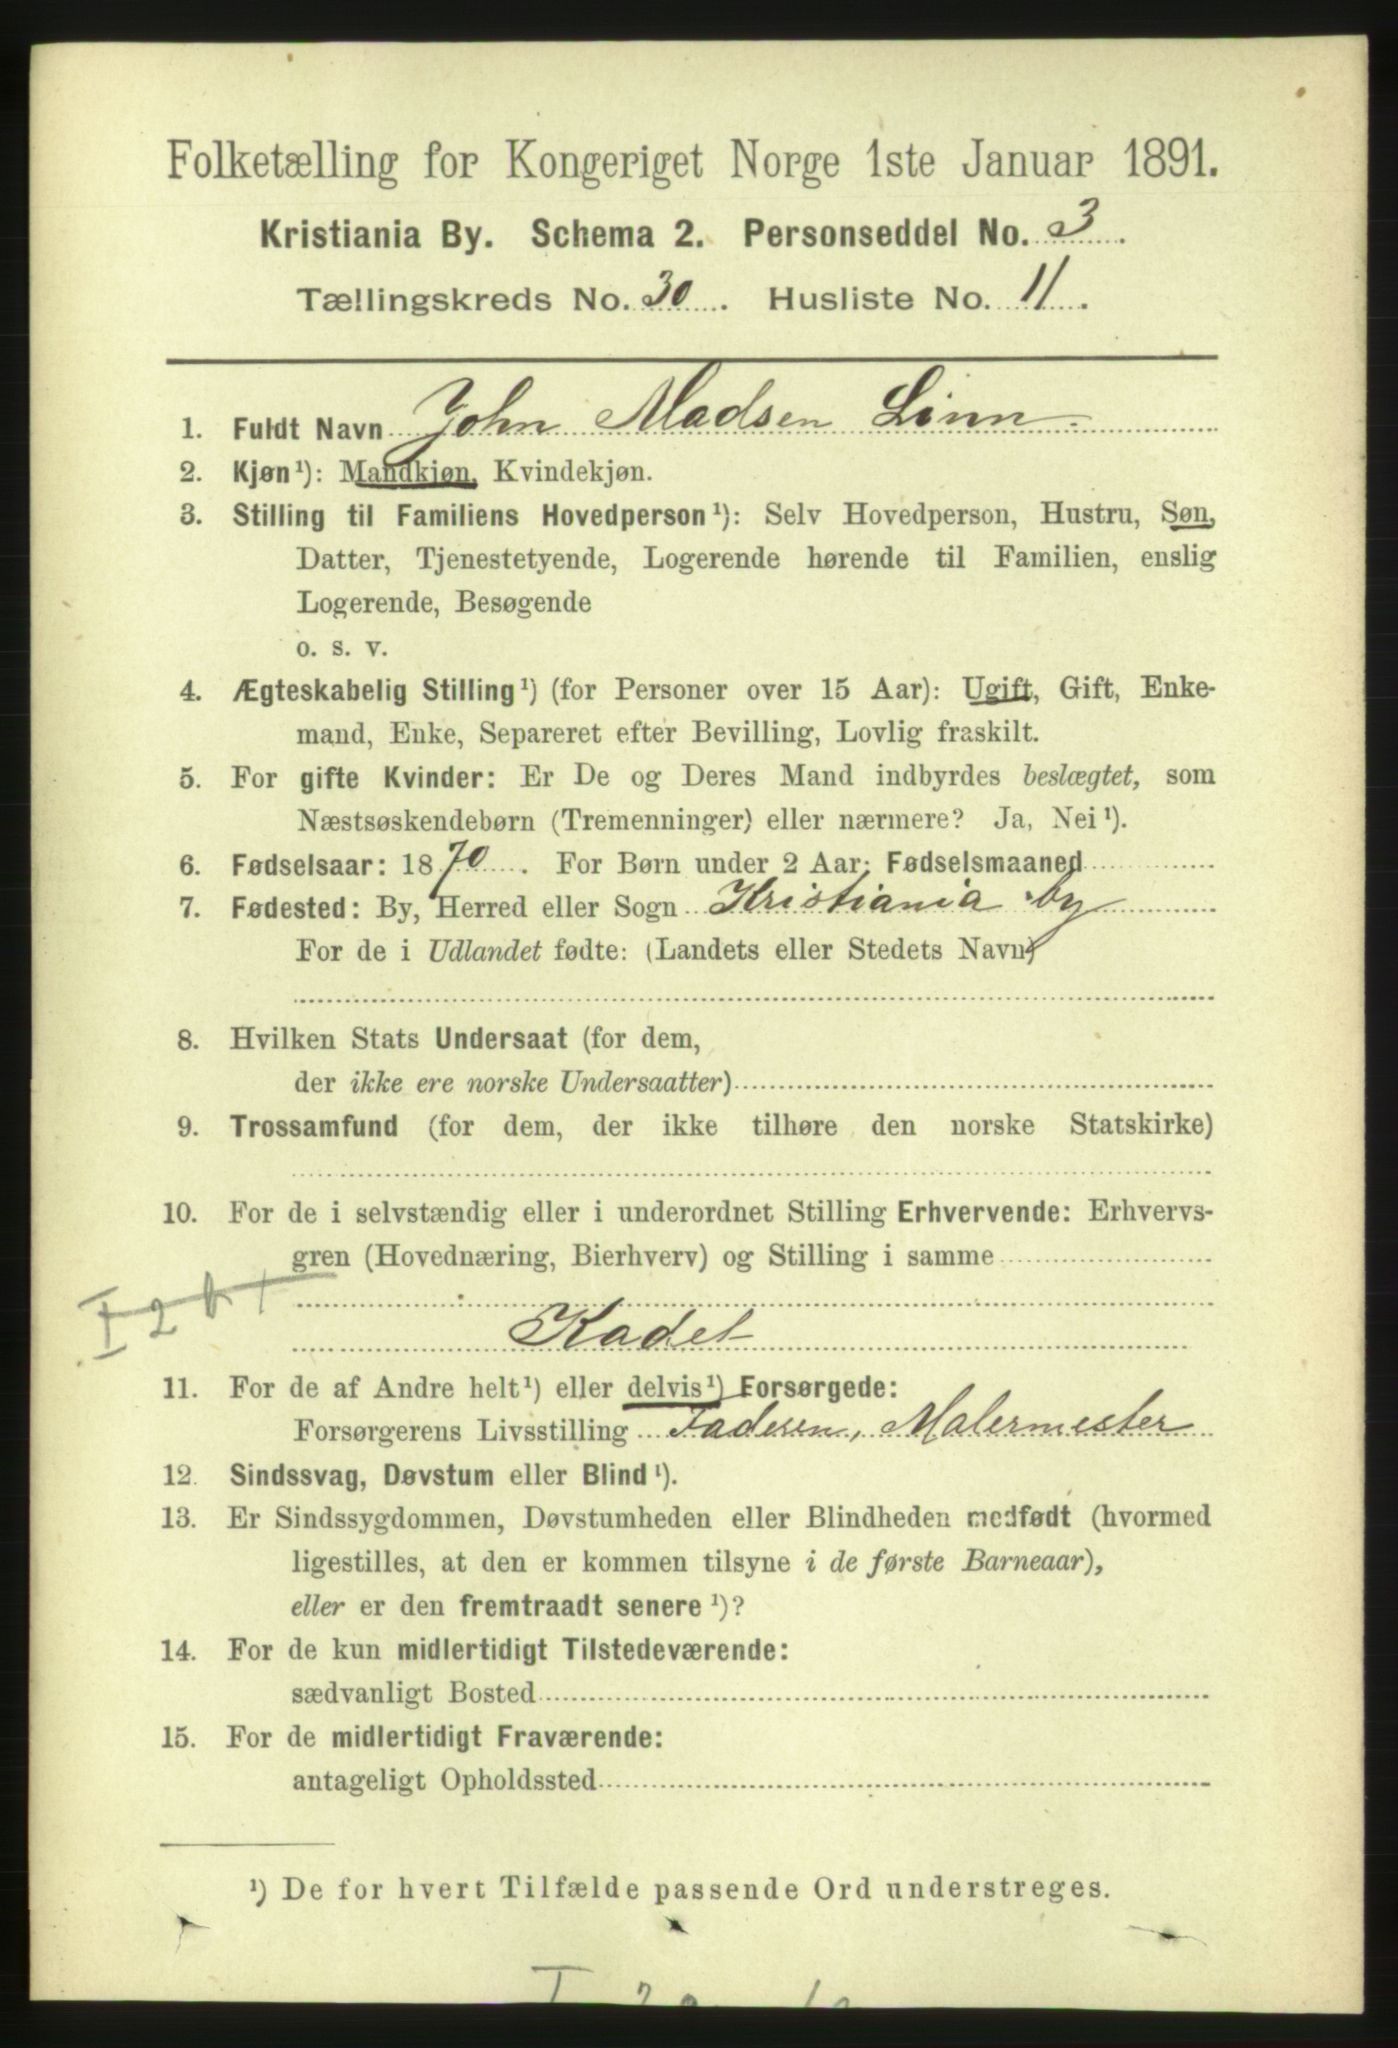 Folketælling for Kongeriget Norge 1ste Januar 1891.
Kristiania By. Schema 2. Personseddel No. 3.
Tællingskreds No. 30. Husliste No. 11.
1. Fuldt Navn John Madsen Linn.
2. Kjøn¹): Mandkjøn, Kvindekjøn.
3. Stilling til Familiens Hovedperson¹): Selv Hovedperson, Hustru, Søn,
Datter, Tjenestetyende, Logerende hørende til Familien, enslig
Logerende, Besøgende
o. s. v.
4. Ægteskabelig Stilling¹) (for Personer over 15 Aar): Ugift, Gift, Enke-
mand, Enke, Separeret efter Bevilling, Lovlig fraskilt.
5. For gifte Kvinder: Er De og Deres Mand indbyrdes beslægtet, som
Næstsøskendebørn (Tremenninger) eller nærmere? Ja, Nei¹).
6. Fødselsaar: 1870. For Børn under 2 Aar: Fødselsmaaned
7. Fødested: By, Herred eller Sogn Kristiania by
For de i Udlandet fødte: (Landets eller Stedets Navn)
8. Hvilken Stats Undersaat (for dem,
der ikke ere norske Undersaatter)
9. Trossamfund (for dem, der ikke tilhøre den norske Statskirke)
10. For de i selvstændig eller i underordnet Stilling Erhvervende: Erhvervs-
gren (Hovednæring, Bierhverv) og Stilling i samme
I 2 b 1
Kadet
11. For de af Andre helt¹) eller delvis¹) Forsørgede:
Forsørgerens Livsstilling Faderen, Malermester
12. Sindssvag, Døvstum eller Blind¹).
13. Er Sindssygdommen, Døvstumheden eller Blindheden medfødt (hvormed
ligestilles, at den er kommen tilsyne i de første Barneaar),
eller er den fremtraadt senere¹)?
14. For de kun midlertidigt Tilstedeværende:
sædvanligt Bosted
15. For de midlertidigt Fraværende:
antageligt Opholdssted
¹) De for hvert Tilfælde passende Ord understreges.